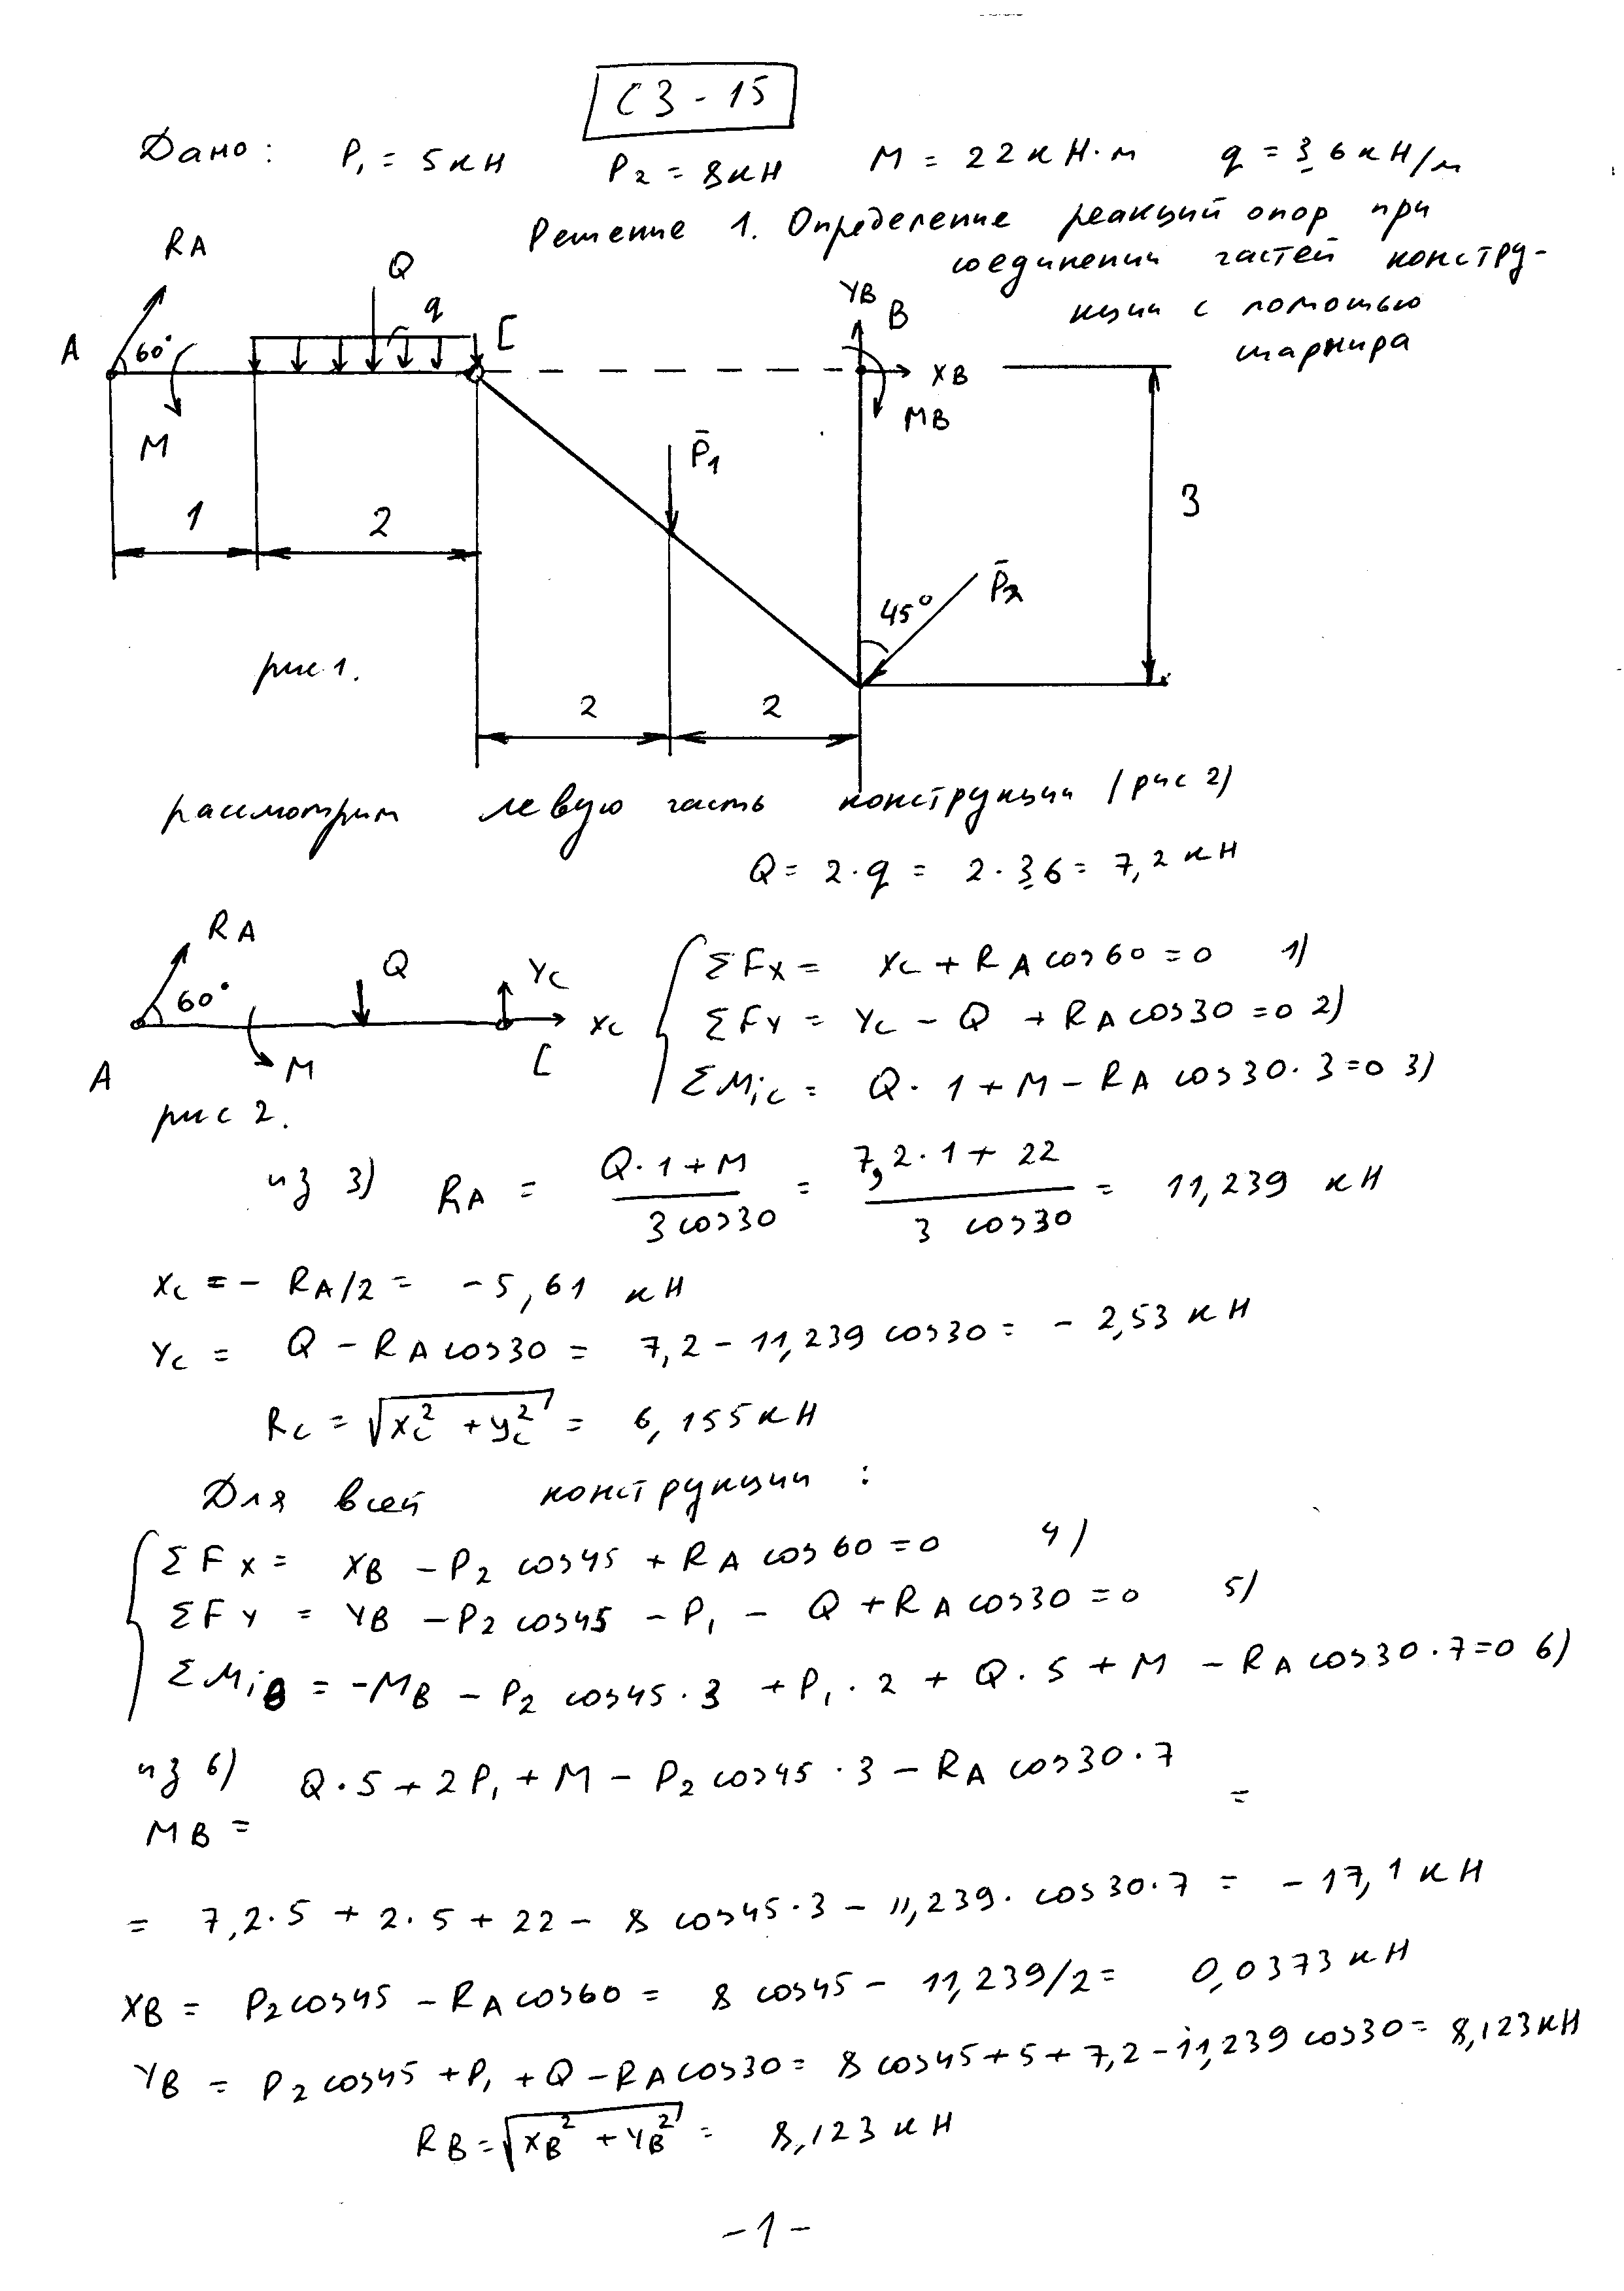 С3-15
Дано: P₁ = 5кН P₂ = 8кН M = 22кН·м q = 3,6кН/м
Решение 1. Определение реакций опор при
соединении частей констру-
кции с помощью
шарнира
RA
Q
q
C
YB
B
A
60°
XB
MB
M
P̄₁
1
2
3
45°
P̄₂
рис 1.
2
2
рассмотрим левую часть конструкции (рис 2)
Q = 2·q = 2·3,6 = 7,2кН
RA
Q
YC
60°
XC
A
M
C
рис 2.
ΣFx = XC + RA cos60 = 0 1)
ΣFy = YC - Q + RA cos30 = 0 2)
ΣMiC = Q·1 + M - RA cos30·3 = 0 3)
из 3) RA = (Q·1+M)/(3cos30) = (7,2·1+22)/(3 cos30) = 11,239 кН
XC = - RA/2 = -5,61 кН
YC = Q - RA cos30 = 7,2 - 11,239 cos30 = -2,53 кН
RC = √(XC² + YC²) = 6,155кН
Для всей конструкции:
ΣFx = XB - P₂ cos45 + RA cos60 = 0 4)
ΣFy = YB - P₂ cos45 - P₁ - Q + RA cos30 = 0 5)
ΣMiB = -MB - P₂ cos45·3 + P₁·2 + Q·5 + M - RA cos30·7 = 0 6)
из 6) Q·5 + 2P₁ + M - P₂ cos45·3 - RA cos30·7
MB = =
= 7,2·5 + 2·5 + 22 - 8 cos45·3 - 11,239·cos30·7 = -17,1 кН
XB = P₂cos45 - RA cos60 = 8 cos45 - 11,239/2 = 0,0373кН
YB = P₂cos45 + P₁ + Q - RA cos30 = 8 cos45+5+7,2-11,239 cos30 = 8,123кН
RB = √(XB² + YB²) = 8,123 кН
-1-